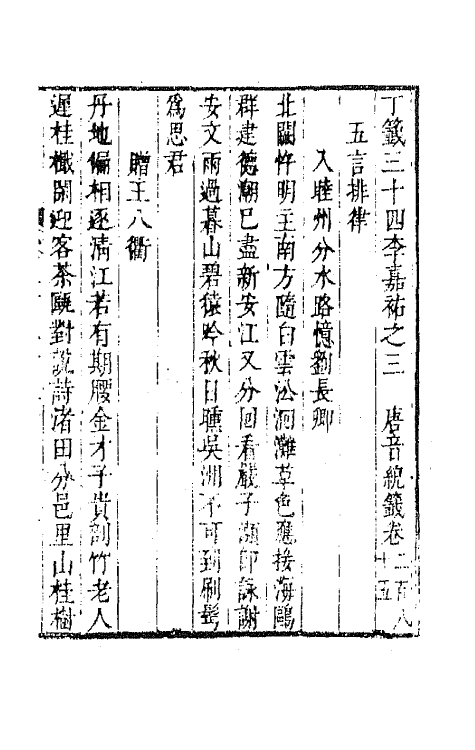 丁籤三十四李嘉祐之三　唐音統籤卷二百八十五
五言排律
入睦州分水路憶劉長卿
北闕忤明主南方隨白雲沿洄灘草色應接海鷗
群建德潮巳盡新安江又分回看嚴子瀬卽詠謝
安文雨過暮山碧猿吟秋日曛吳洲不可到刷鬂
爲思君
贈王八衢
丹地偏相逐清江若有期腰金才子貴剖竹老人
遲桂檝閑迎客茶甌對說詩渚田分邑里山桂樹